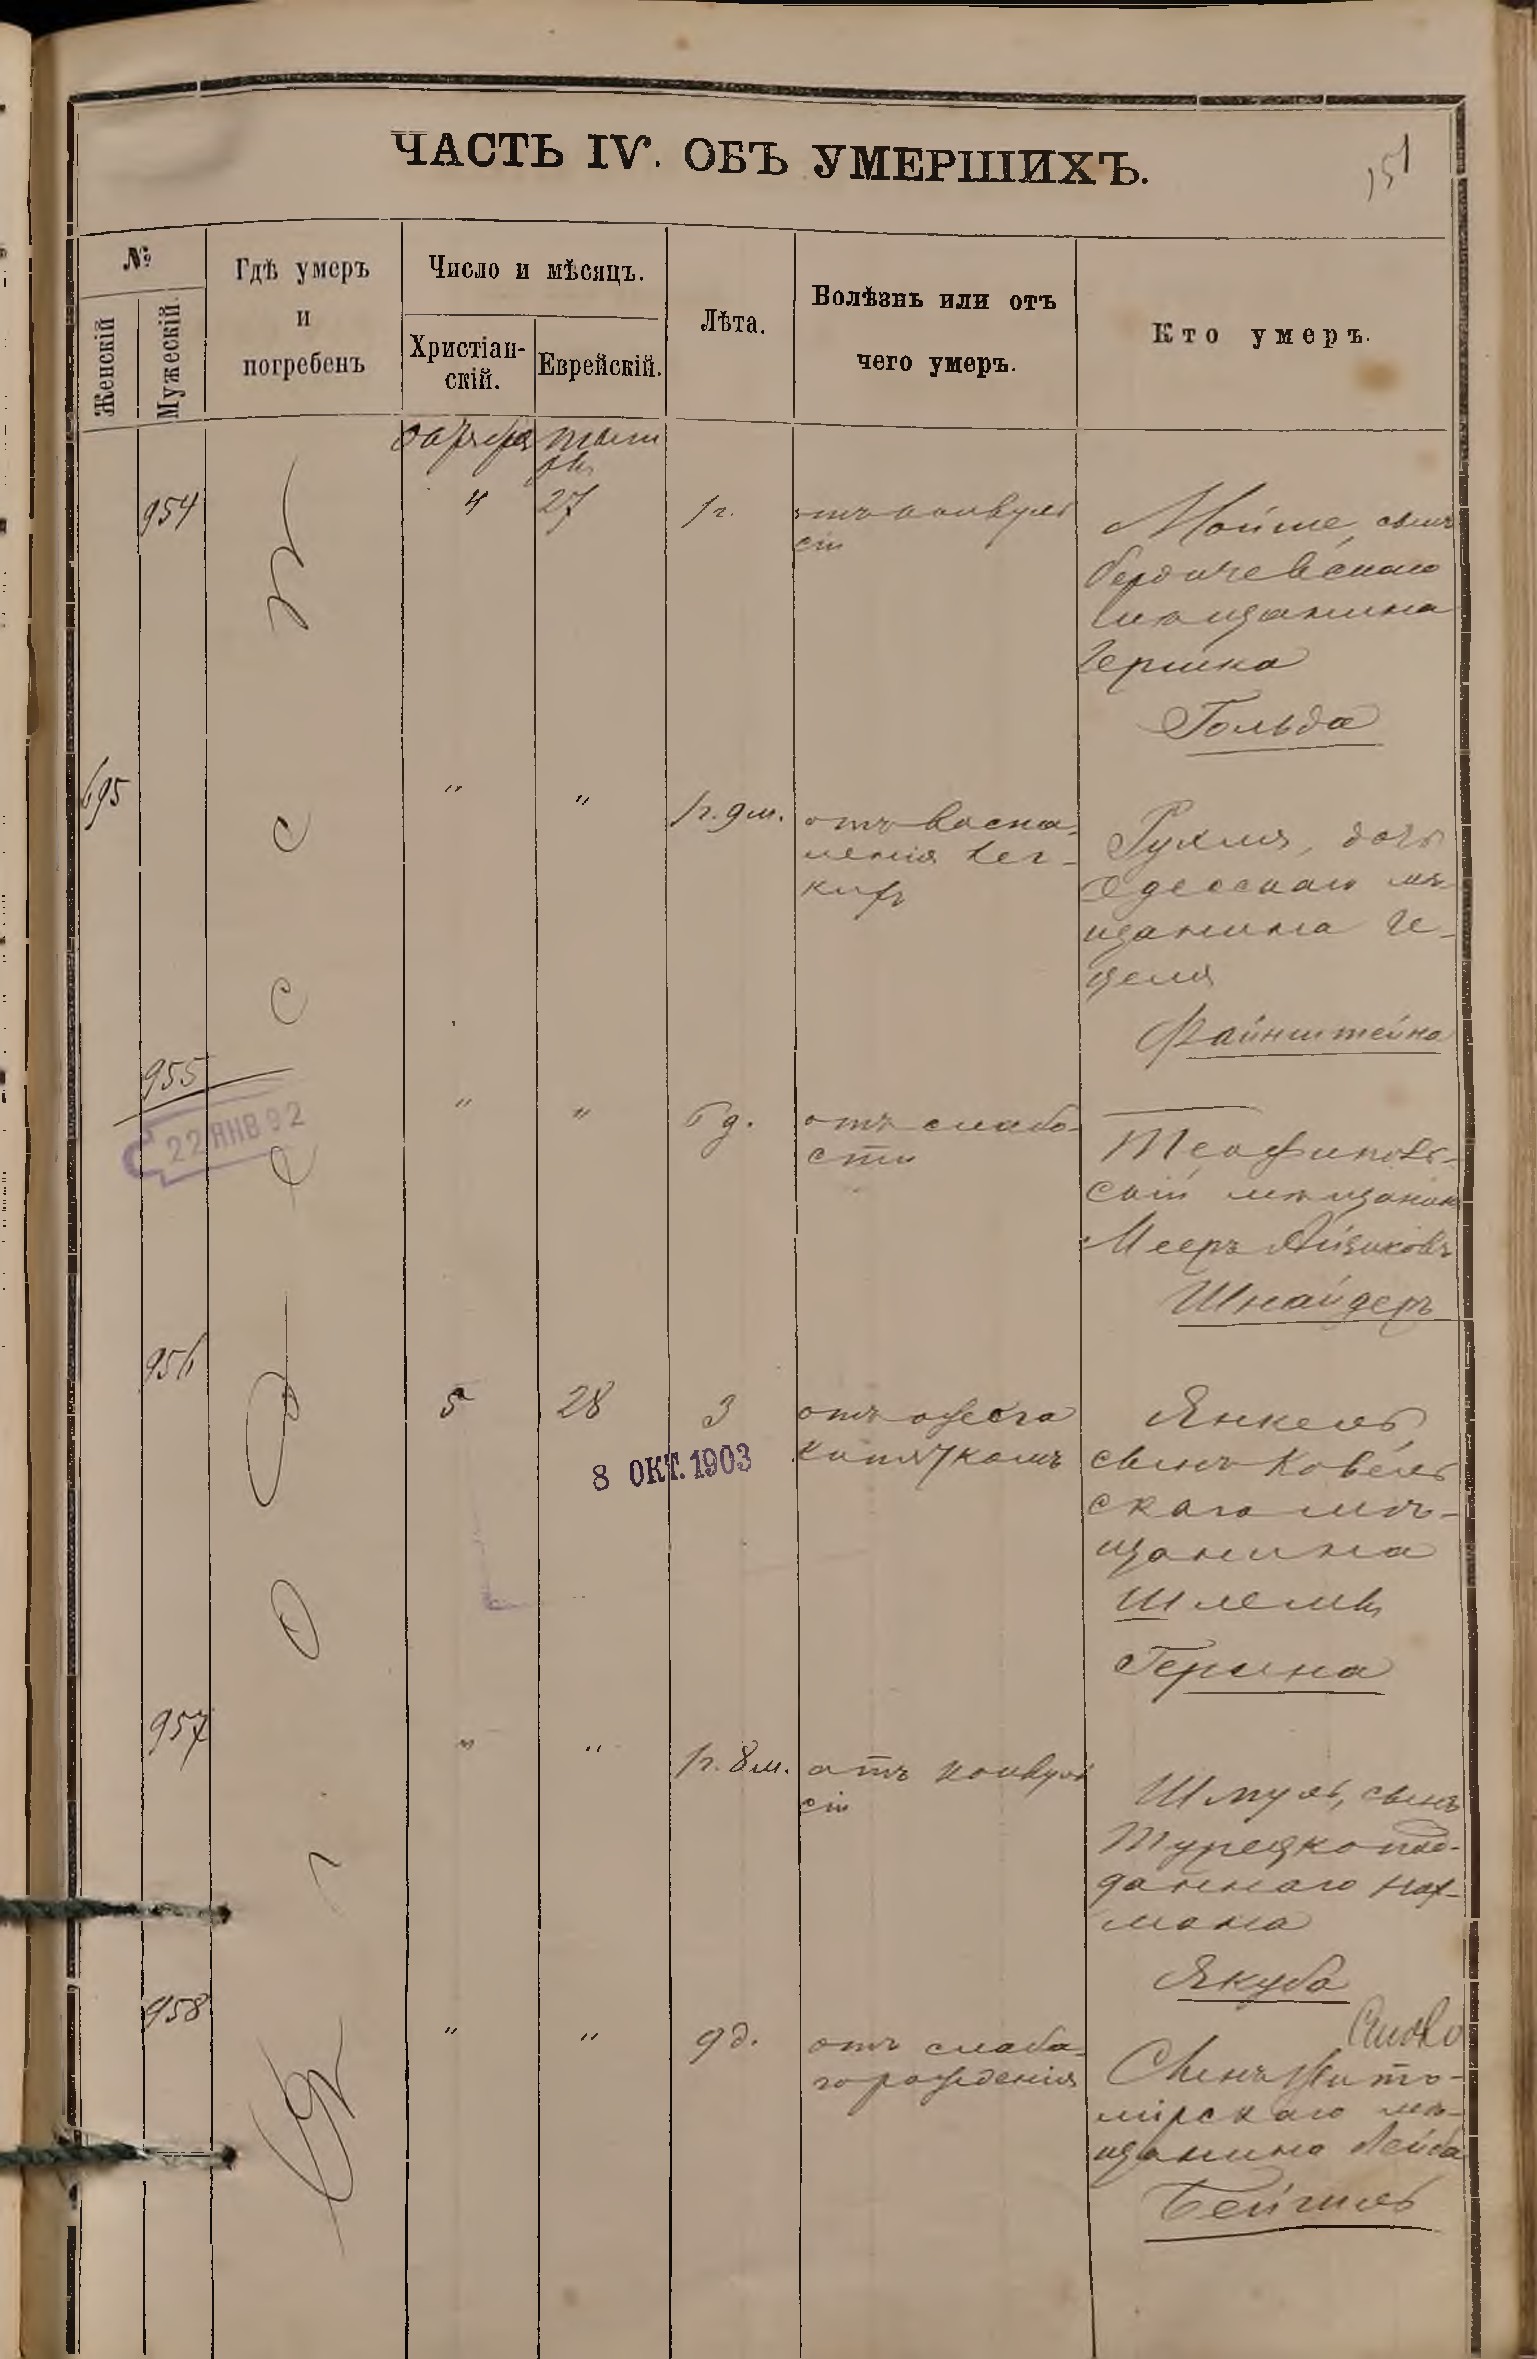 ЧАСТЬ IV. ОБЪ УМЕРШИХЪ.
151
№
Женскій
Мужескій
Гдѣ умеръ
и
погребенъ
Число и мѣсяцъ.
Христіан-
скій.
Еврейскій.
Лѣта.
Болѣзнь или отъ
чего умеръ.
Кто умеръ.
954
4
27
1 г.
отъ конвуль
сіи
Мойше, сынъ
бердичевскаго
мѣщанина
Гершка
Гольда
695
"
"
1 г. 9 м.
отъ воспа-
ленія лег-
кихъ
Рухля, дочь
Одесскаго мѣ-
щанина Ге-
целя
Файнштейна
955
22 ЯНВ 92
"
"
6 д.
отъ слабо-
сти
Теофиполь-
скій мѣщанинъ
Мееръ Айзиковъ
Шнайдеръ
956
5
28
3
отъ ожога
кипяткомъ
8 ОКТ. 1903
Янкель,
сынъ Ковель
скаго мѣ-
щанина
Шлемы
957
"
"
1 г. 8 м.
отъ конвуль
сіи
Шмуль, сынъ
Турецкопод-
даннаго Нах-
мана
Якуба
958
"
"
9 д.
отъ слаба-
го рожденія
Сынъ Жито-
мірскаго мѣ-
щанина Лейба
Бейгиль